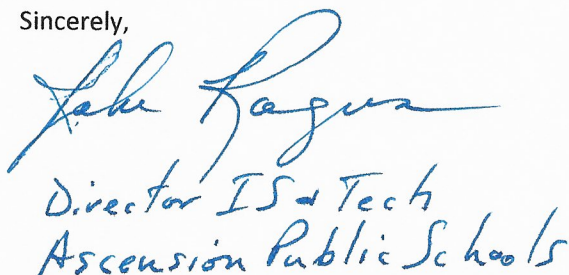 Sincerely,
Director IS & Tech
Ascension Public Schools